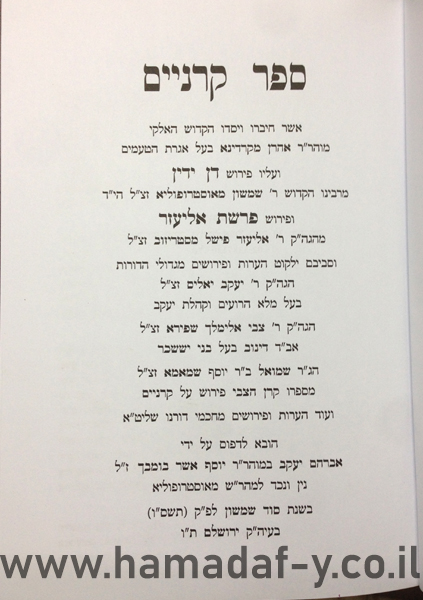 ספר קרניים
אשר חיברו ויסדו הקדוש האלקי
מוהר"ר אהרן מקרדינא בעל אגרת הטעמים
ועליו פירוש דן ידין
מרבינו הקדוש ר' שמשון מאוסטרופוליא זצ"ל הי"ד
ופירוש פרשת אליעזר
מהגה"ק ר' אליעזר פישל מסטריזוב זצ"ל
וסביבם ילקוט הערות ופירושים מגדולי הדורות
הגה"ק ר' יעקב יאלים זצ"ל
בעל מלא הרועים וקהלת יעקב
הגה"ק ר' צבי אלימלך שפירא זצ"ל
אב"ד דינוב בעל בני יששכר
הג"ר שמואל ב"ר יוסף שמאמא זצ"ל
מספרו קרן הצבי פירוש על קרניים
ועוד הערות ופירושים מחכמי דורנו שליט"א
הובא לדפוס על ידי
אברהם יעקב במוהר"ר יוסף אשר בומבך ז"ל
נין ונכד למהר"ש מאוסטרופוליא
בשנת סוד שמשון לפ"ק (תשס"ו)
בעיה"ק ירושלם ת"ו
www.hamadaf-y.co.il